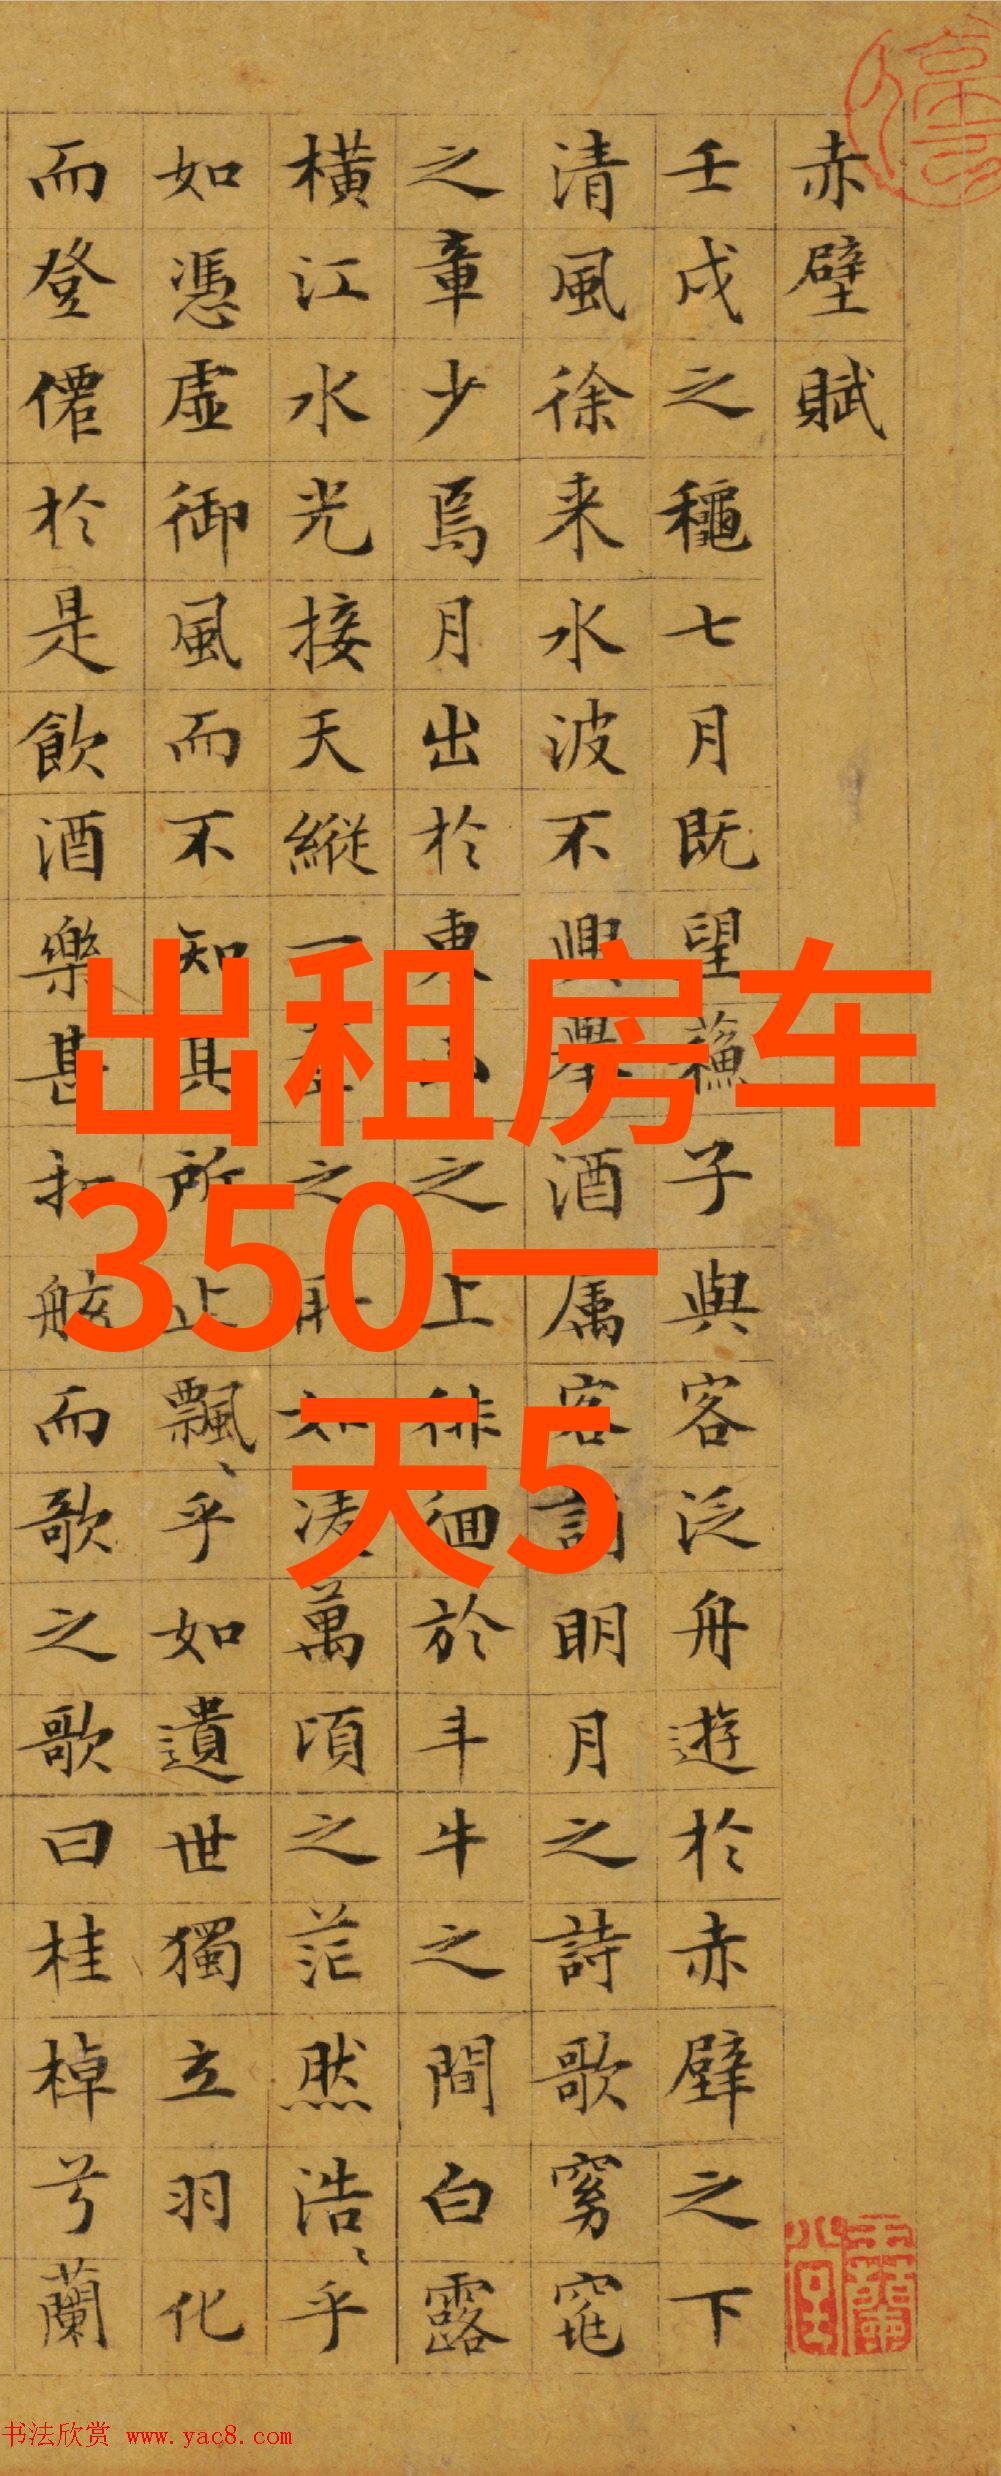 赤壁賦
壬戌之穐七月既望蘓子與客泛舟遊於赤壁之下
清風徐来水波不興舉酒属客誦眀月之詩歌窈窕
之章少焉月出於東山之上徘徊於斗牛之間白露
橫江水光接天縱一之所如凌萬頃之茫然浩、乎
如憑虛御風而不知其所止飄、乎如遺世獨立羽化
而登僊於是飲酒樂甚扣舷而歌之歌曰桂棹兮蘭
出租房车
350一
天5
书法欣赏 www.yac8.com